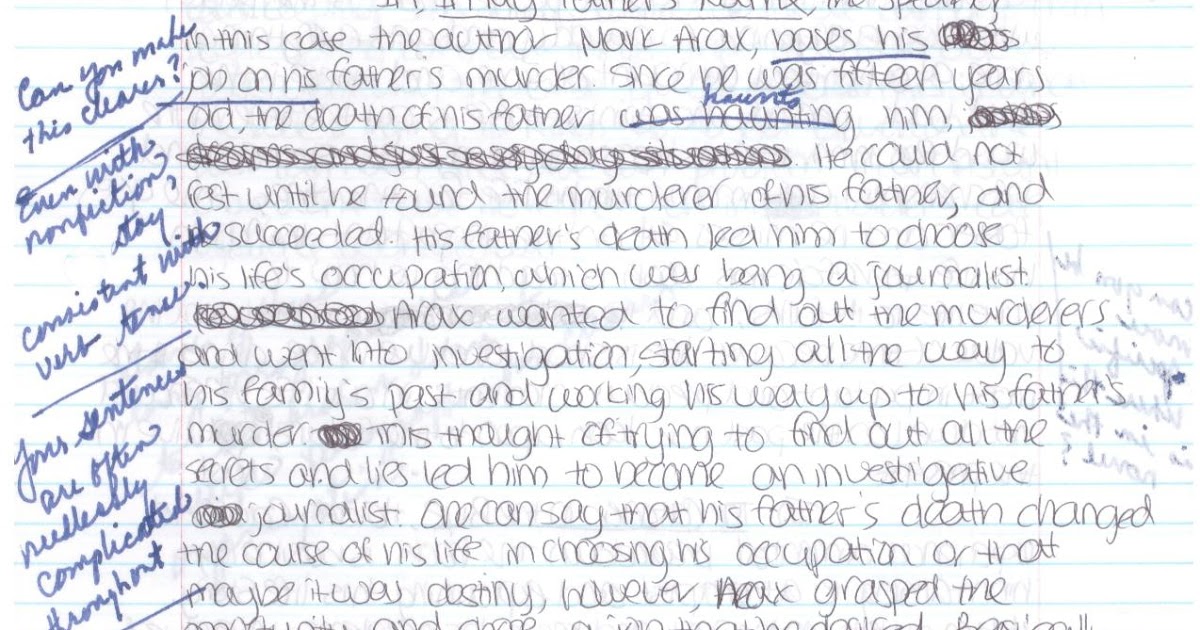 In, In My Father's Name, the speaker,
in this case the author Mark Arax, bases his
job on his father's murder. Since he was fifteen years
old, the death of his father was haunting him,
haunts
He could not
rest until he found the murderer of his father, and
he succeeded. His father's death led him to choose
his life's occupation, which was being a journalist.
Arax wanted to find out the murderers
and went into investigation, starting all the way to
his family's past and working his way up to his father's
murder. This thought of trying to find out all the
secrets and lies led him to become an investigative
journalist. One can say that his father's death changed
the course of his life in choosing his occupation or that
maybe it was destiny, however, Arax grasped the
Can you make
this clearer?
Even with
nonfiction,
stay
consistent with
verb tense.
Your sentences
are often
needlessly
complicated
throughout